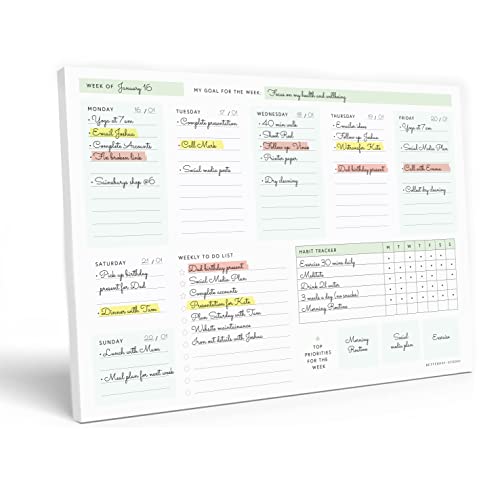 WEEK OF January 16
MY GOAL FOR THE WEEK: Focus on my health and wellbeing
MONDAY 16 / 01
• Yoga at 7am
• Email Joshua
• Complete Accounts
• Fix broken link
• Sainsburys shop @6
TUESDAY 17 / 01
• Complete presentation
• Call Mark
• Social media posts
WEDNESDAY 18 / 01
• 40 min walk
• Shoot Reel
• Follow up
• Printer paper
• Dry cleaning
THURSDAY 19 / 01
• Follow up Joshua
• Wetransfer Kate
• Dad birthday present
FRIDAY 20 / 01
• Yoga at 7am
• Social Media Plan
• Call with Emma
• Collect dry cleaning
SATURDAY 21 / 01
• Pick up birthday
present for Dad
• Dinner with Tim
SUNDAY 22 / 01
• Lunch with Mum
• Meal plan for next week
WEEKLY TO DO LIST
Dad birthday present
Social Media Plan
Complete accounts
Presentation for Kate
Plan Saturday with Tim
Website maintainance
Iron out details with Joshua
HABIT TRACKER M T W T F S S
Exercise 30 mins daily
Meditate
Drink 2l water
3 meals a day (no snacks)
Morning Routine
TOP
PRIORITIES
FOR THE
WEEK
Morning
Routine
Social
media plan
Exercise